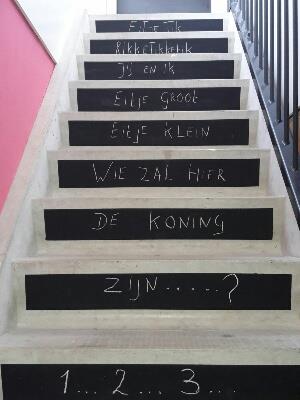 Eitje tik
Rikketikketik
Jij en ik
Eitje groot
Eitje klein
Wie zal hier
De koning
Zijn.....?
1... 2... 3...